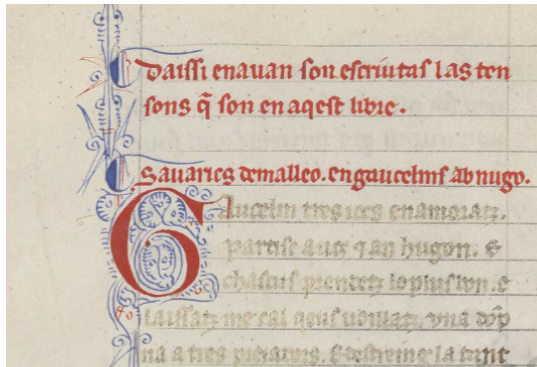 Daissi enauan son escriutas las ten
sons q̃ son en aqest libre.
Sauarics demalleo. engaucelms ab nugo.
Gaucelm tres iocs enamoratz.
partisc auos ⁊ an hugon. E
chascus prentetz lo plus bon. e
laissatz me cal qeus uoillatz. Vna dõp
na a tres preiadors. E destreing la tant